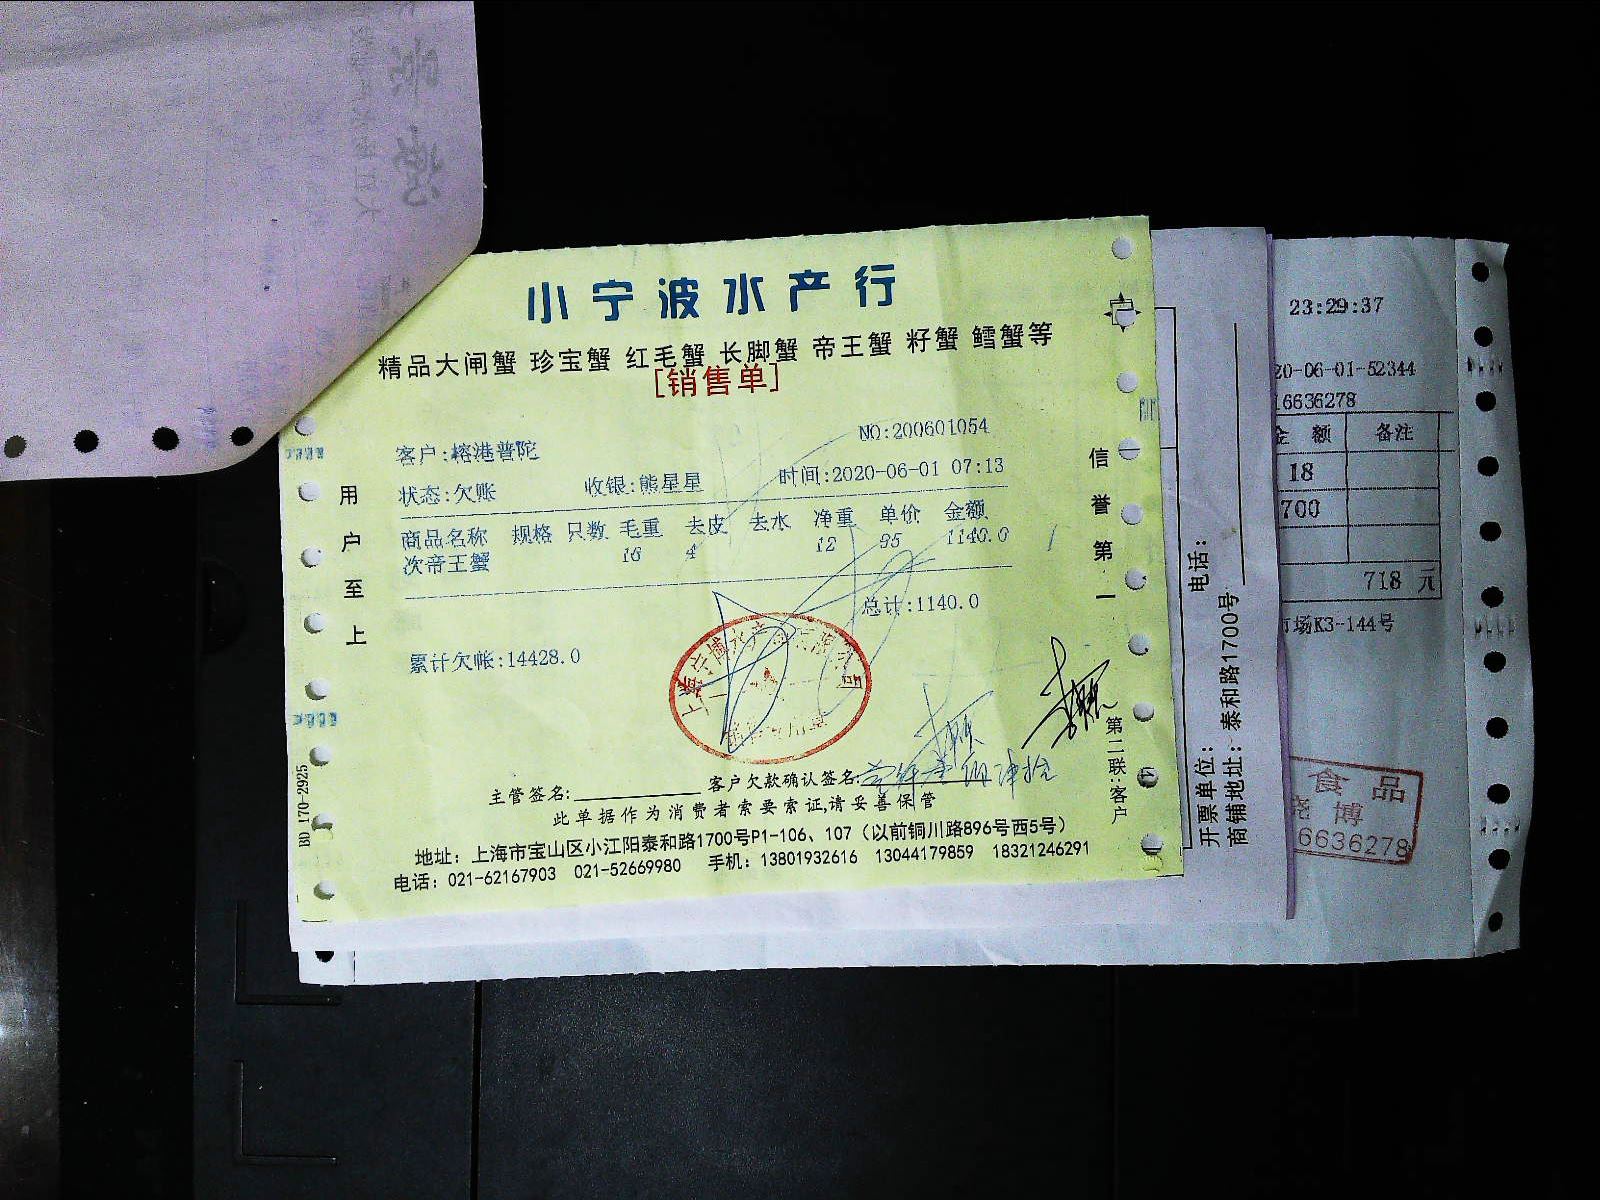 小宁波水产行
精品大闸蟹 珍宝蟹 红毛蟹 长脚蟹 帝王蟹 籽蟹 鳕蟹等
[销售单]
NO:200601054
客户:榕港普陀
状态:欠账 收银:熊星星 时间:2020-06-01 07:13
商品名称 规格 只数 毛重 去皮 去水 净重 单价 金额
次帝王蟹 16 4 12 95 1140.0
总计:1140.0
累计欠帐:14428.0
主管签名: 客户欠款确认签名:
此单据作为消费者索要索证,请妥善保管
地址：上海市宝山区小江阳泰和路1700号P1-106、107（以前铜川路896号西5号）
电话：021-62167903 021-52669980 手机：13801932616 13044179859 18321246291
用户至上
信誉第一
第二联:客户
BD 170-2925
开票单位: 电话:
商铺地址: 泰和路1700号
23:29:37
20-06-01-52344
16636278
金 额 备注
18
700
718 元
市场K3-144号
食品
博
6636278